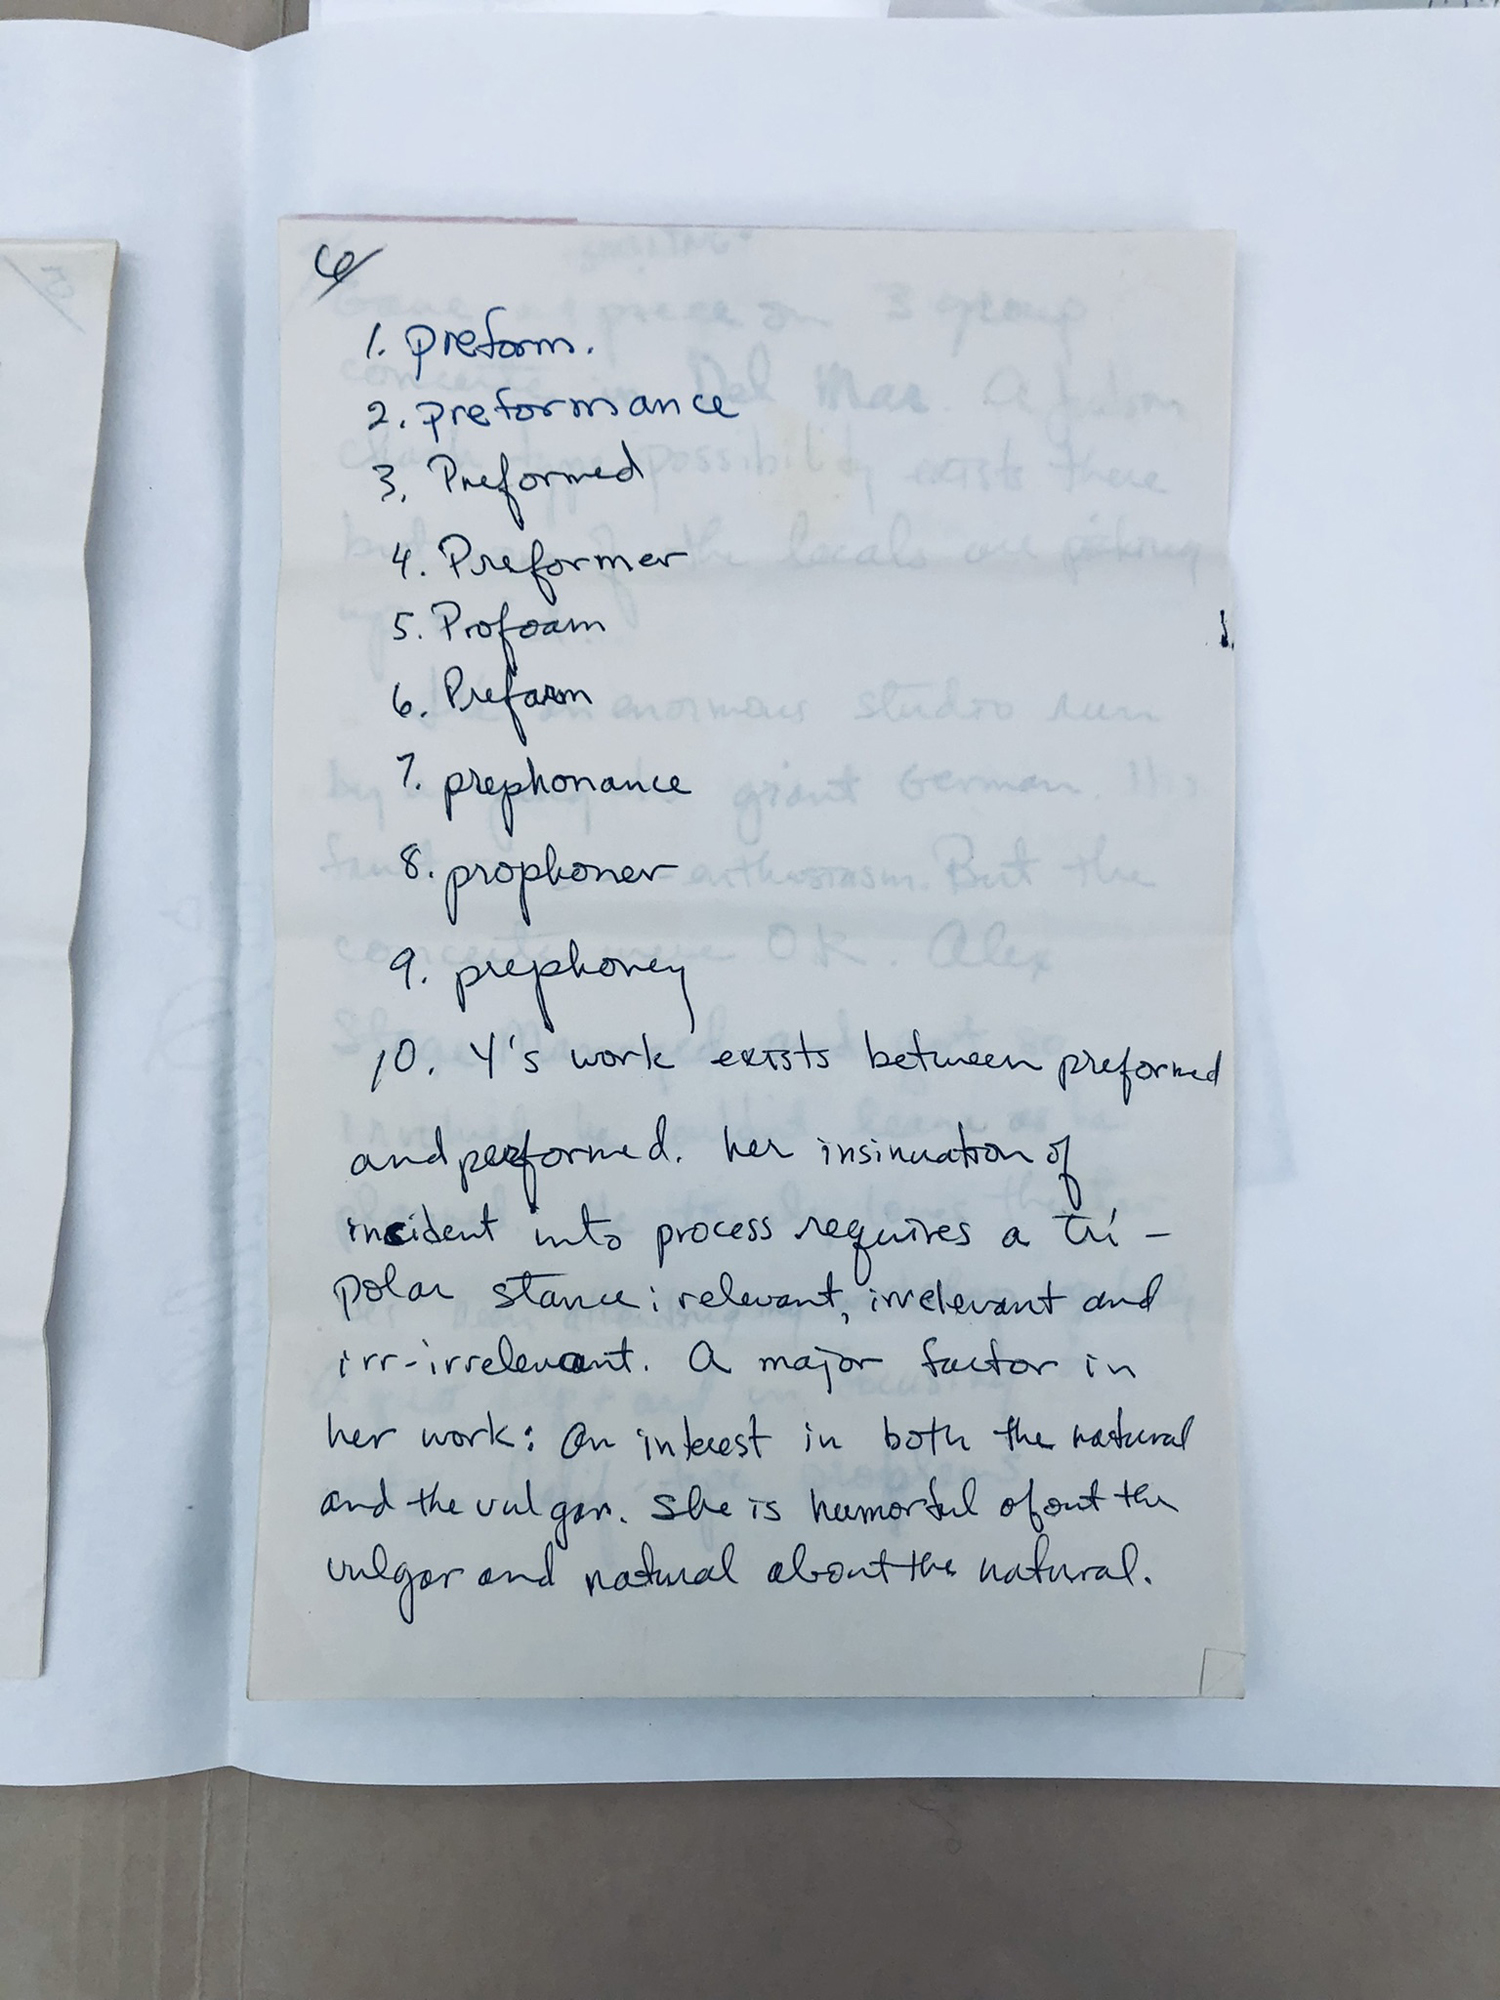 6/
1. preform.
2. preformance
3. Preformed
4. Preformer
5. Profoam
6. Prefarm
7. prephonance
8. prophoner
9. prephoney
10. Y's work exists between preformed
and performed. her insinuation of
incident into process requires a tri-
polar stance: relevant, irrelevant and
irr-irrelevant. A major factor in
her work: An interest in both the natural
and the vulgar. She is humorful the
vulgar and natural about the natural.